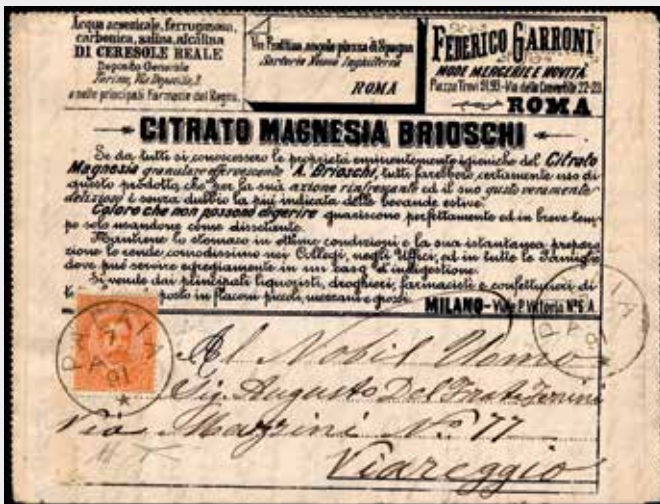 Acqua arsenicale, ferruginosa,
carbonica, salina, alcalina
DI CERESOLE REALE
Deposito Generale
Torino, Via
e nelle principali Farmacie del Regno.
Via Frattina, angolo piazza di Spagna
Sartoria Nuova Inghilterra
ROMA
FEDERICO GARRONI
MODE MERCERIE E NOVITÀ
Piazza Trevi 91.93 - Via delle Convertite 22-23
ROMA
CITRATO MAGNESIA BRIOSCHI
Se da tutti si conoscessero le proprietà eminentemente igieniche del Citrato
Magnesia granulare effervescente A. Brioschi, tutti farebbero certamente uso di
questo prodotto, che per la sua azione rinfrescante ed il suo gusto veramente
delizioso è senza dubbio la più indicata delle bevande estive.
Coloro che non possono digerire guariscono perfettamente ed in breve tem-
po solo usandone come dissetante.
Mantiene lo stomaco in ottime condizioni e la sua istantanea prepara-
zione lo rende comodissimo nei Collegi, negli Uffici, ed in tutte le Famiglie
dove può servire egregiamente in un caso di indigestione.
Si vende dai principali liquoristi, droghieri, farmacisti e confetturieri di
posto in flaconi piccoli, mezzani e grossi.
MILANO - Via P. Vittoria Nº 6 A.
91
Al Nobil Uomo
Sig. Augusto Del Prato
Via Mazzini Nº 77
Viareggio